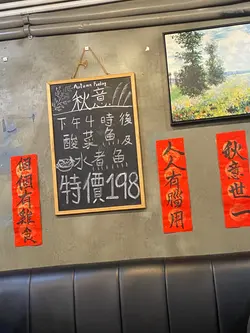 Autumn Feeling
秋意
下午4時後
酸菜魚及
水煮魚
特價198
個個有雞食
人人有腦用
秋意世一